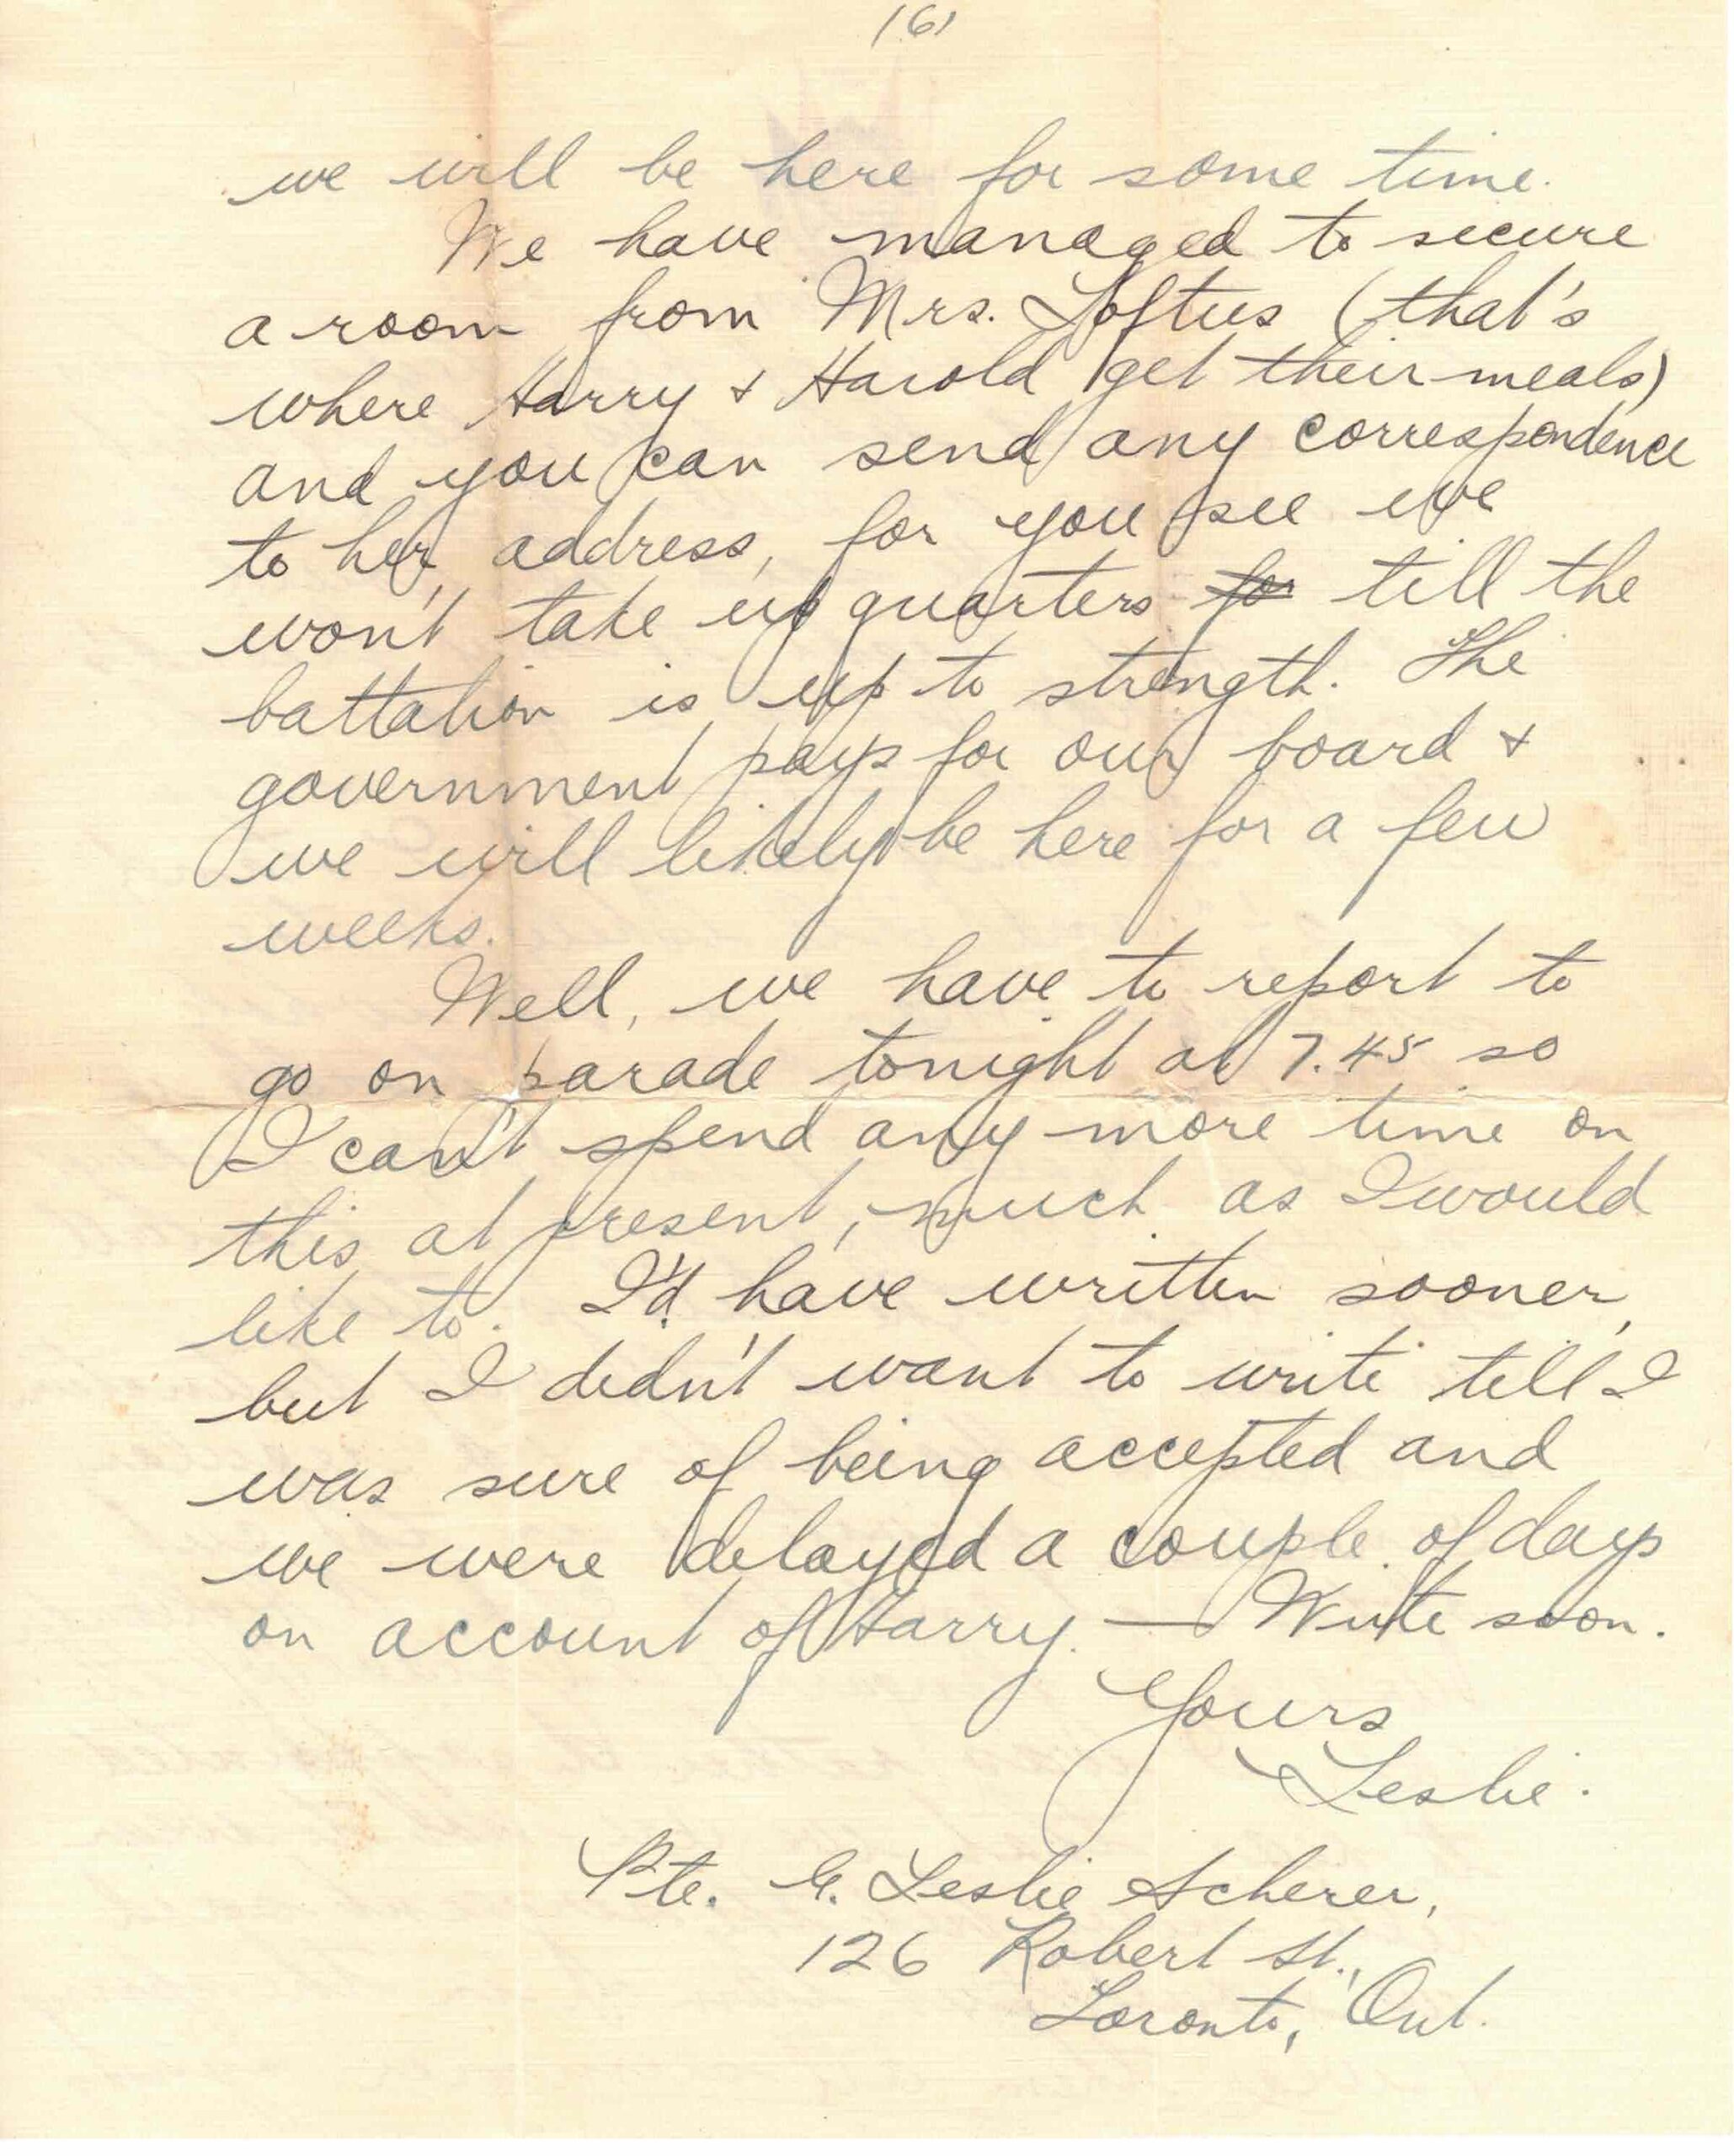 (6)
we will be here for some time.
We have managed to secure
a room from Mrs. Loftus (that's
where Harry & Harold get their meals)
and you can send any correspondence
to her address, for you see we
won't take up quarters ~~for~~ till the
battalion is up to strength. The
government pays for our board &
we will likely be here for a few
weeks.
Well, we have to report to
go on parade tonight at 7.45 so
I can't spend any more time on
this at present, much as I would
like to. I'd have written sooner,
but I didn't want to write till I
was sure of being accepted and
we were delayed a couple of days
on account of Harry. — Write soon.
Yours
Leslie.
Pte. G. Leslie Scherer,
126 Robert St.,
Toronto, Ont.